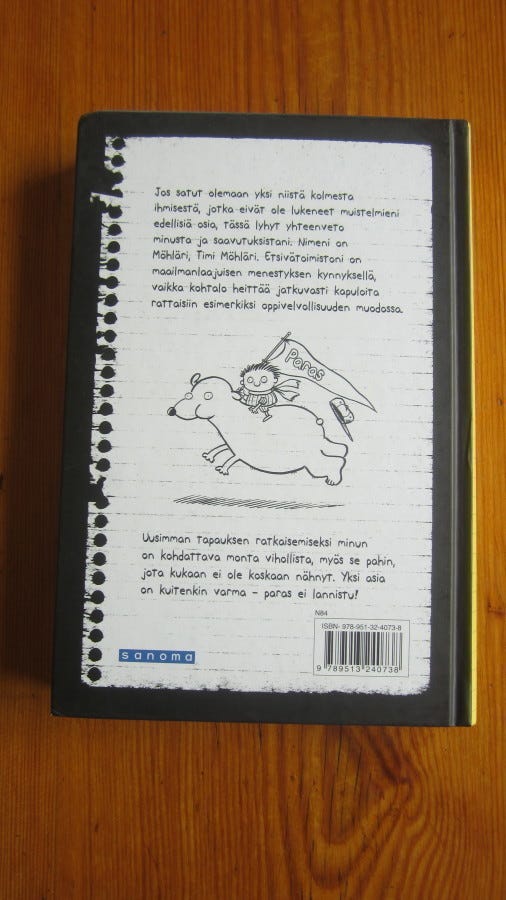 Jos satut olemaan yksi niistä kolmesta
ihmisestä, jotka eivät ole lukeneet muistelmieni
edellisiä osia, tässä lyhyt yhteenveto
minusta ja saavutuksistani. Nimeni on
Möhläri, Timi Möhläri. Etsivätoimistoni on
maailmanlaajuisen menestyksen kynnyksellä,
vaikka kohtalo heittää jatkuvasti kapuloita
rattaisiin esimerkiksi oppivelvollisuuden muodossa.
Paras
Uusimman tapauksen ratkaisemiseksi minun
on kohdattava monta vihollista, myös se pahin,
jota kukaan ei ole koskaan nähnyt. Yksi asia
on kuitenkin varma – paras ei lannistu!
N84
ISBN- 978-951-32-4073-8
9 789513 240738
sanoma